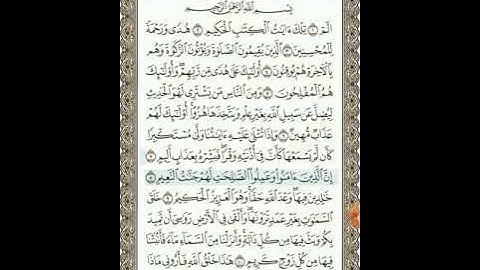 بِسْمِ اللَّهِ الرَّحْمَٰنِ الرَّحِيمِ
الٓمٓ ١ تِلْكَ ءَايَٰتُ ٱلْكِتَٰبِ ٱلْحَكِيمِ ٢ هُدًى وَرَحْمَةً
لِّلْمُحْسِنِينَ ٣ ٱلَّذِينَ يُقِيمُونَ ٱلصَّلَوٰةَ وَيُؤْتُونَ ٱلزَّكَوٰةَ وَهُم
بِٱلْءَاخِرَةِ هُمْ يُوقِنُونَ ٤ أُو۟لَٰٓئِكَ عَلَىٰ هُدًى مِّن رَّبِّهِمْ ۖ وَأُو۟لَٰٓئِكَ
هُمُ ٱلْمُفْلِحُونَ ٥ وَمِنَ ٱلنَّاسِ مَن يَشْتَرِى لَهْوَ ٱلْحَدِيثِ
لِيُضِلَّ عَن سَبِيلِ ٱللَّهِ بِغَيْرِ عِلْمٍ وَيَتَّخِذَهَا هُزُوًا ۚ أُو۟لَٰٓئِكَ لَهُمْ
عَذَابٌ مُّهِينٌ ٦ وَإِذَا تُتْلَىٰ عَلَيْهِ ءَايَٰتُنَا وَلَّىٰ مُسْتَكْبِرًا
كَأَن لَّمْ يَسْمَعْهَا كَأَنَّ فِىٓ أُذُنَيْهِ وَقْرًا ۖ فَبَشِّرْهُ بِعَذَابٍ أَلِيمٍ ٧
إِنَّ ٱلَّذِينَ ءَامَنُوا۟ وَعَمِلُوا۟ ٱلصَّٰلِحَٰتِ لَهُمْ جَنَّٰتُ ٱلنَّعِيمِ ٨
خَٰلِدِينَ فِيهَا ۖ وَعْدَ ٱللَّهِ حَقًّا ۚ وَهُوَ ٱلْعَزِيزُ ٱلْحَكِيمُ ٩ خَلَقَ
ٱلسَّمَٰوَٰتِ بِغَيْرِ عَمَدٍ تَرَوْنَهَا ۖ وَأَلْقَىٰ فِى ٱلْأَرْضِ رَوَٰسِىَ أَن تَمِيدَ
بِكُمْ وَبَثَّ فِيهَا مِن كُلِّ دَآبَّةٍ ۚ وَأَنزَلْنَا مِنَ ٱلسَّمَآءِ مَآءً فَأَنۢبَتْنَا
فِيهَا مِن كُلِّ زَوْجٍ كَرِيمٍ ١٠ هَٰذَا خَلْقُ ٱللَّهِ فَأَرُونِى مَاذَا